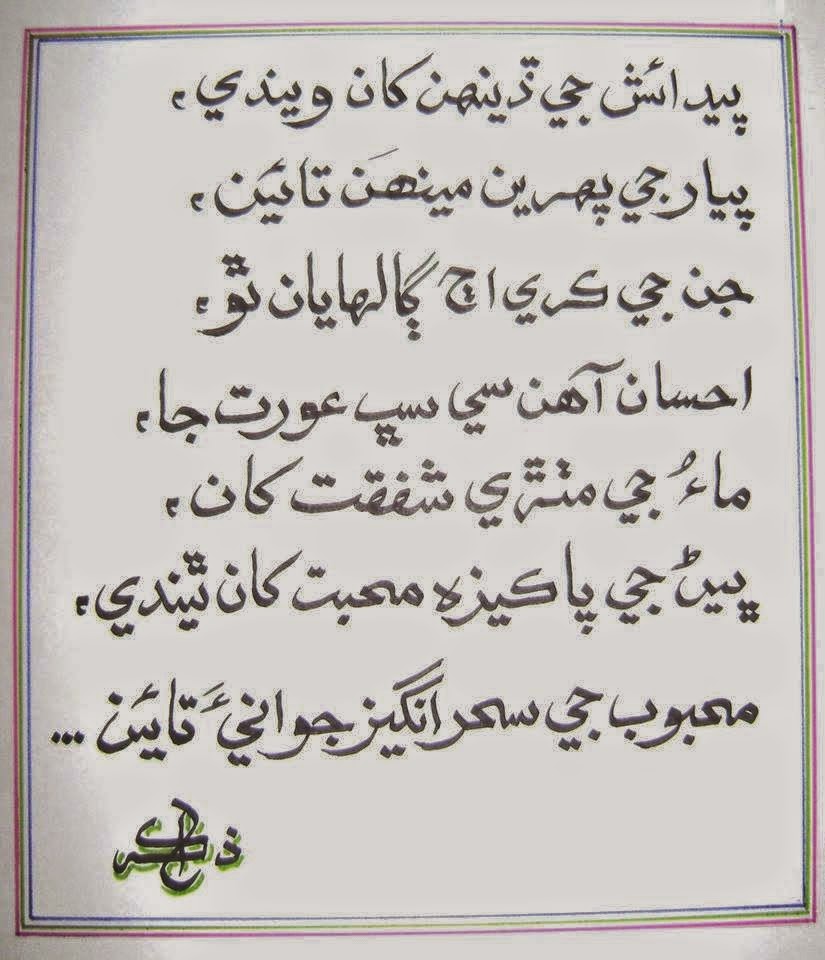 پيدائش جي ڏينهن کان ويندي،
پيار جي پهرين مينهَن تائين،
جن جي ڪري اڄ ڳالهايان ٿو،
احسان آهن سي سڀ عورت جا،
ماءُ جي مٺڙي شفقت کان،
ڀيڻ جي پاڪيزه محبت کان ٿيندي،
محبوب جي سحر انگيز جوانيءَ تائين ...